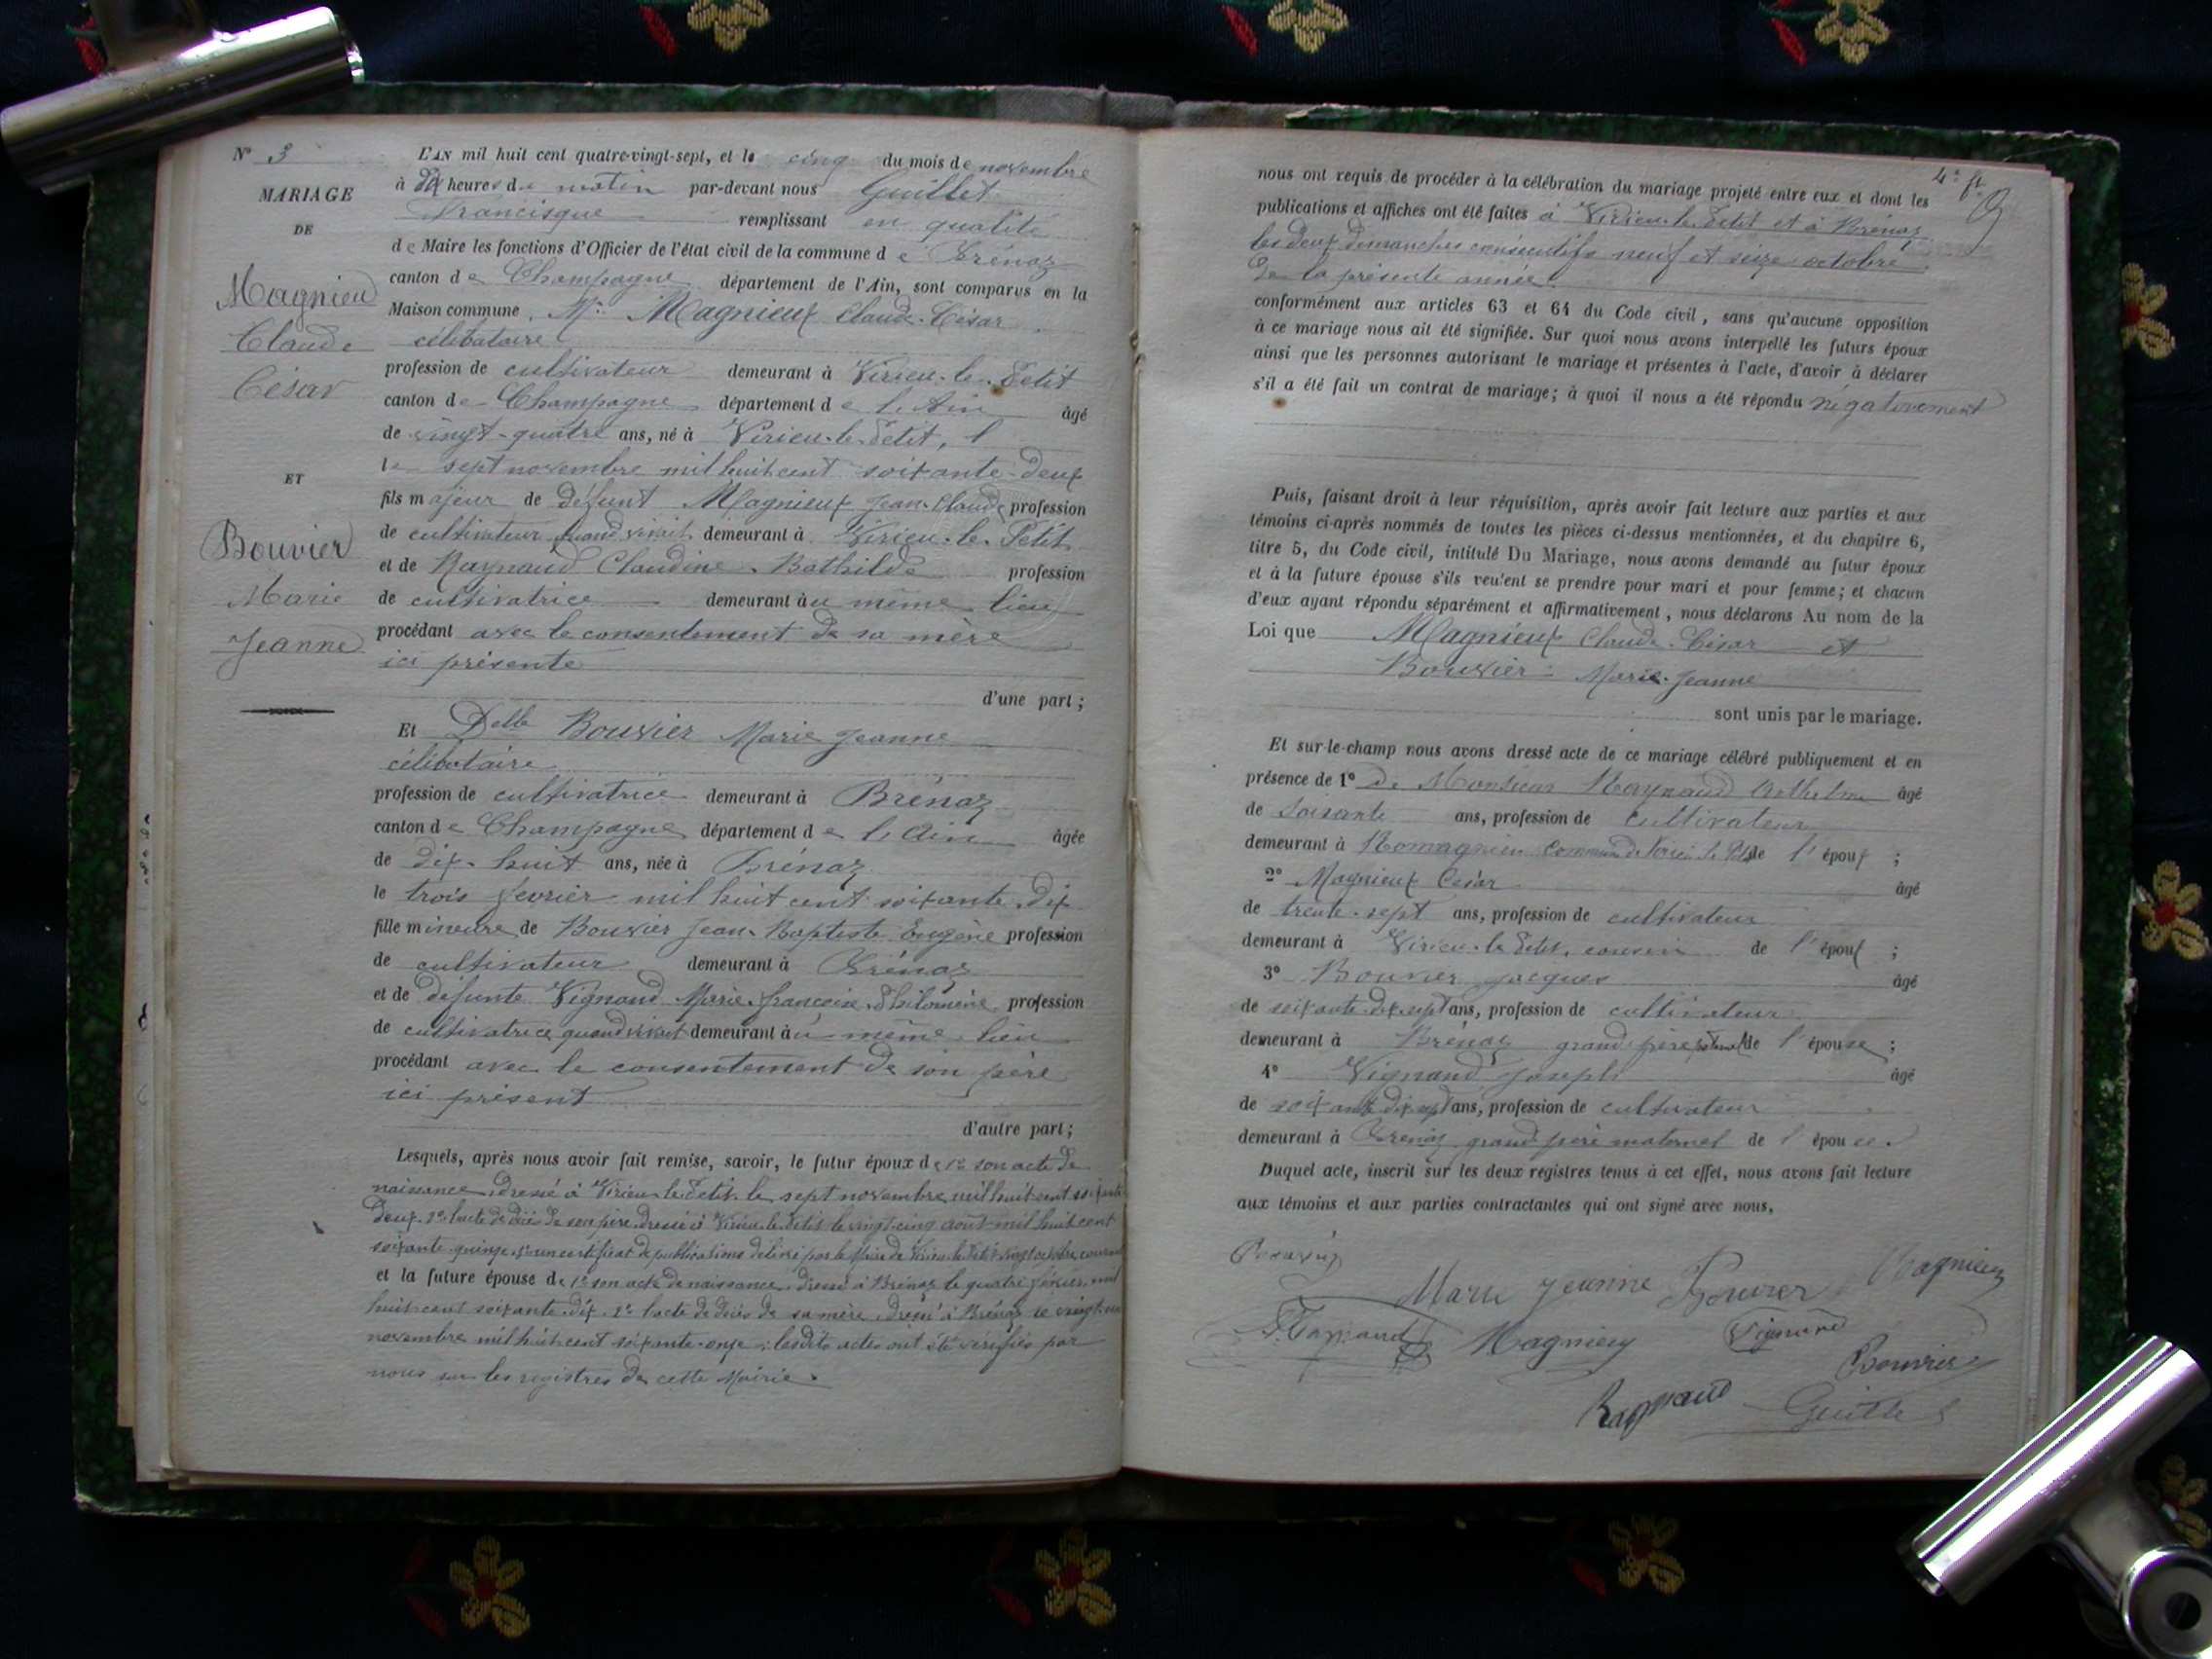 N° 3
MARIAGE
DE
Magnieu
Claude
César
ET
Bouvier
Marie
Jeanne
L'AN mil huit cent quatre-vingt-sept, et le cinq du mois de novembre
à dix heures du matin par-devant nous Guillet
Francisque remplissant en qualité
de Maire les fonctions d'Officier de l'état civil de la commune de Brénaz
canton de Champagne département de l'Ain, sont comparus en la
Maison commune, Mr Magnieux Claude-César
célibataire
profession de cultivateur demeurant à Virieu-le-Petit
canton de Champagne département de l'Ain âgé
de vingt-quatre ans, né à Virieu-le-Petit, l
le sept novembre mil huit cent soixante-deux
fils majeur de défunt Magnieux Jean-Claude profession
de cultivateur quand vivait demeurant à Virieu-le-Petit
et de Raynaud Claudine-Bathilde profession
de cultivatrice demeurant au même lieu
procédant avec le consentement de sa mère
ici présente
d'une part ;
Et Delle Bouvier Marie Jeanne
célibataire
profession de cultivatrice demeurant à Brénaz
canton de Champagne département de l'Ain âgée
de dix-huit ans, née à Brénaz
le trois fevrier mil huit cent soixante-dix
fille mineure de Bouvier Jean-Baptiste Eugène profession
de cultivateur demeurant à Brénaz
et de défunte Vignand Marie-françoise-Philomène profession
de cultivatrice quand vivait demeurant au même lieu
procédant avec le consentement de son père
ici présent
d'autre part ;
Lesquels, après nous avoir fait remise, savoir, le futur époux de 1° son acte de
naissance, dressé à Virieu-le-Petit le sept novembre mil huit cent soixante
deux, 2° l'acte de décès de son père dressé à Virieu-le-Petit le vingt-cinq août mil huit cent
soixante-quinze, 3° un certificat de publications délivré par le Maire de Virieu-le-Petit vingt octobre courant
et la future épouse de 1° son acte de naissance, dressé à Brénaz le quatre février mil
huit cent soixante-dix, 2° l'acte de décès de sa mère, dressé à Brénaz le vingt-un
novembre mil huit cent soixante-onze ; lesdits actes ont été vérifiés par
nous sur les registres de cette Mairie.
4e ft
nous ont requis de procéder à la célébration du mariage projeté entre eux et dont les
publications et affiches ont été faites à Virieu-le-Petit et à Brénaz
les deux dimanches consécutifs neuf et seize octobre
de la présente année
conformément aux articles 63 et 64 du Code civil, sans qu'aucune opposition
à ce mariage nous ait été signifiée. Sur quoi nous avons interpellé les futurs époux
ainsi que les personnes autorisant le mariage et présentes à l'acte, d'avoir à déclarer
s'il a été fait un contrat de mariage ; à quoi il nous a été répondu négativement
Puis, faisant droit à leur réquisition, après avoir fait lecture aux parties et aux
témoins ci-après nommés de toutes les pièces ci-dessus mentionnées, et du chapitre 6,
titre 5, du Code civil, intitulé Du Mariage, nous avons demandé au futur époux
et à la future épouse s'ils veulent se prendre pour mari et pour femme ; et chacun
d'eux ayant répondu séparément et affirmativement, nous déclarons Au nom de la
Loi que Magnieux Claude-César et
Bouvier Marie-Jeanne
sont unis par le mariage.
Et sur-le-champ nous avons dressé acte de ce mariage célébré publiquement et en
présence de 1° De Monsieur Raynaud Anthelme âgé
de soixante ans, profession de cultivateur
demeurant à Romagnieu commune de Virieu-le-Petit de l'époux ;
2° Magnieux César âgé
de trente-sept ans, profession de cultivateur
demeurant à Virieu-le-Petit, cousin de l'époux ;
3° Bouvier Jacques âgé
de soixante-dix-sept ans, profession de cultivateur
demeurant à Brénaz grand-père paternel de l'épouse ;
4° Vignand Joseph âgé
de soixante-dix-sept ans, profession de cultivateur
demeurant à Brénaz grand père maternel de l'épouse.
Duquel acte, inscrit sur les deux registres tenus à cet effet, nous avons fait lecture
aux témoins et aux parties contractantes qui ont signé avec nous.
Bouvier
Marie Jeanne Bouvier Magnieux
Raynaud Magnieux Vignand
Bouvier
Raynaud Guillet